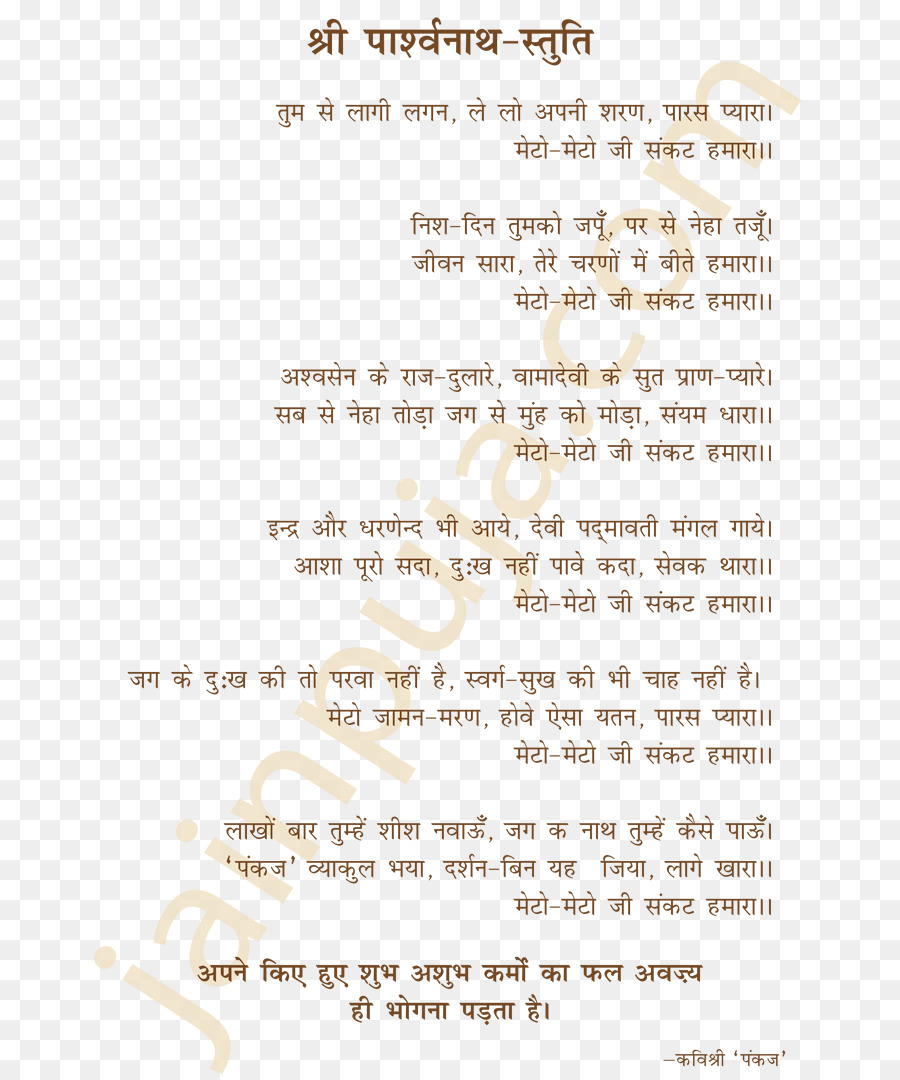 श्री पार्श्वनाथ-स्तुति
तुम से लागी लगन, ले लो अपनी शरण, पारस प्यारा।
मेटो-मेटो जी संकट हमारा।।
निश-दिन तुमको जपूँ, पर से नेहा तजूँ।
जीवन सारा, तेरे चरणों में बीते हमारा।।
मेटो-मेटो जी संकट हमारा।।
अश्वसेन के राज-दुलारे, वामादेवी के सुत प्राण-प्यारे।
सब से नेहा तोड़ा जग से मुंह को मोड़ा, संयम धारा।।
मेटो-मेटो जी संकट हमारा।।
इन्द्र और धरणेन्द भी आये, देवी पद्मावती मंगल गाये।
आशा पूरो सदा, दुःख नहीं पावे कदा, सेवक थारा।।
मेटो-मेटो जी संकट हमारा।।
जग के दुःख की तो परवा नहीं है, स्वर्ग-सुख की भी चाह नहीं है।
मेटो जामन-मरण, होवे ऐसा यतन, पारस प्यारा।।
मेटो-मेटो जी संकट हमारा।।
लाखों बार तुम्हें शीश नवाऊँ, जग क नाथ तुम्हें कैसे पाऊँ।
‘पंकज’ व्याकुल भया, दर्शन-बिन यह जिया, लागे खारा।।
मेटो-मेटो जी संकट हमारा।।
अपने किए हुए शुभ अशुभ कर्मों का फल अवज़्य
ही भोगना पड़ता है।
-कविश्री ‘पंकज’
jainpuja.com